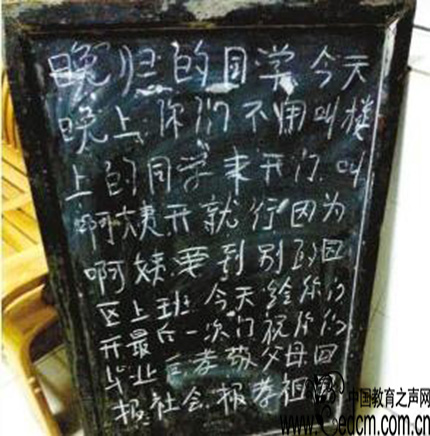 晚归的同学今天
晚上你们不用叫楼
上的同学来开门.叫
啊姨开就行因为
啊姨要到别的园
区上班.今天给你们
开最后一次门祝你们
毕业后孝敬父母回
报社会.报孝祖
中国教育之声网
www.edcm.com.cn